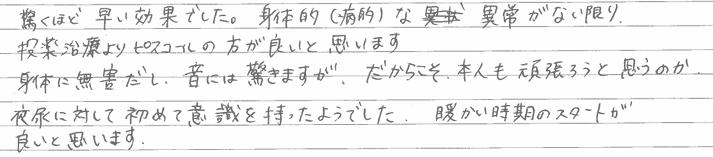 驚くほど 早い効果でした。身体的(病的)な 異常がない限り、
投薬治療よりピスコールの方が良いと思います
身体に無害だし、音には驚きますが、だからこそ、本人も頑張ろうと思うのか、
夜尿に対して初めて意識を持ったようでした。 暖かい時期のスタートが
良いと思います。